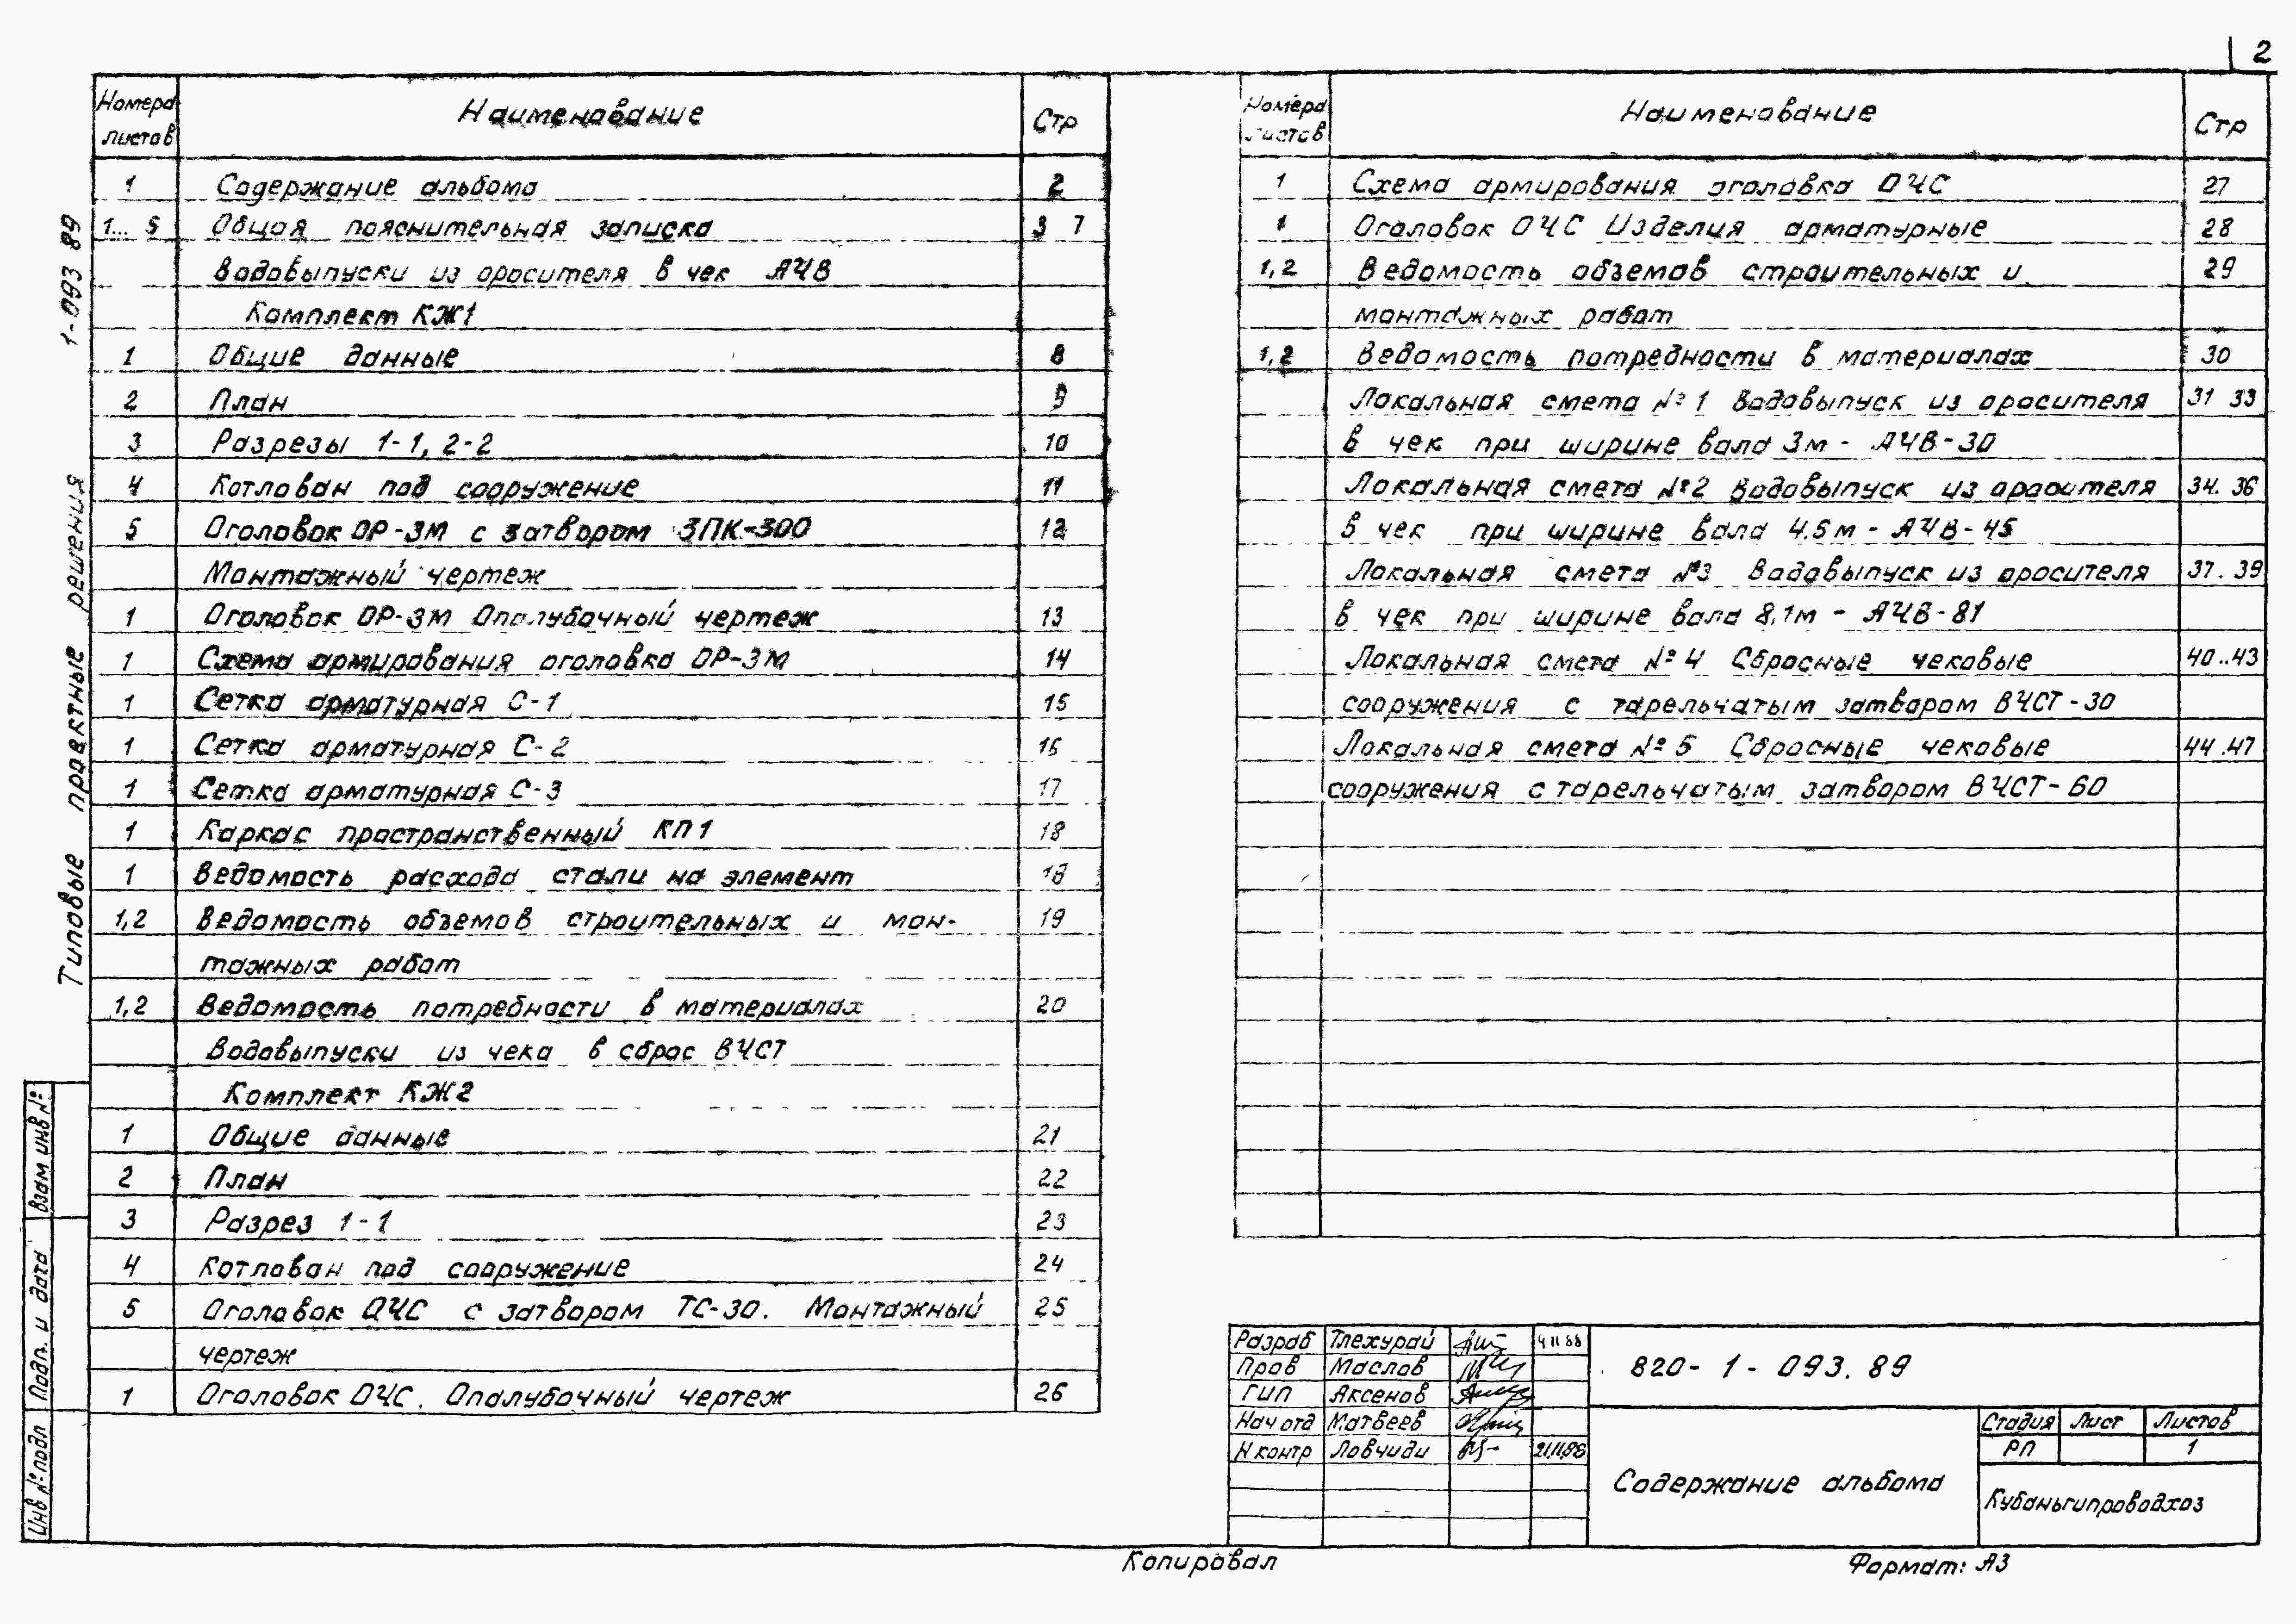 2
Номера листов Наименование Стр
1 Содержание альбома 2
1... 5 Общая пояснительная записка 3 7
Водовыпуски из оросителя в чек АЧВ
Комплект КЖ1
1 Общие данные 8
2 План 9
3 Разрезы 1-1, 2-2 10
4 Котлован под сооружение 11
5 Оголовок ОР-3М с затвором ЗПК-300 12
Монтажный чертеж
1 Оголовок ОР-3М Опалубочный чертеж 13
1 Схема армирования оголовка ОР-3М 14
1 Сетка арматурная С-1 15
1 Сетка арматурная С-2 16
1 Сетка арматурная С-3 17
1 Каркас пространственный КП1 18
1 Ведомость расхода стали на элемент 18
1,2 Ведомость объемов строительных и мон-
тажных работ 19
1,2 Ведомость потребности в материалах 20
Водовыпуски из чека в сброс ВЧСТ
Комплект КЖ2
1 Общие данные 21
2 План 22
3 Разрез 1-1 23
4 Котлован под сооружение 24
5 Оголовок ОЧС с затвором ТС-30. Монтажный 25
чертеж
1 Оголовок ОЧС. Опалубочный чертеж 26
Номера листов Наименование Стр
1 Схема армирования оголовка ОЧС 27
1 Оголовок ОЧС Изделия арматурные 28
1,2 Ведомость объемов строительных и 29
монтажных работ
1,2 Ведомость потребности в материалах 30
Локальная смета №1 Водовыпуск из оросителя 31 33
в чек при ширине вала 3м - АЧВ-30
Локальная смета №2 Водовыпуск из оросителя 34. 36
в чек при ширине вала 4.5м - АЧВ-45
Локальная смета №3 Водовыпуск из оросителя 37. 39
в чек при ширине вала 8,1м - АЧВ-81
Локальная смета №4 Сбросные чековые 40..43
сооружения с тарельчатым затвором ВЧСТ-30
Локальная смета №5 Сбросные чековые 44.47
сооружения с тарельчатым затвором ВЧСТ-60
Типовые проектные решения 1-093 89
Взам инв №
Подп. и дата
Инв № подл
Разраб Тлехурай 4 11 88
Пров Маслов
ГИП Аксенов
Нач отд Матвеев
Н контр Ловчиди 21.11.88
820- 1 - 093. 89
Содержание альбома
Стадия Лист Листов
РП 1
Кубаньгипроводхоз
Копировал
Формат: А3